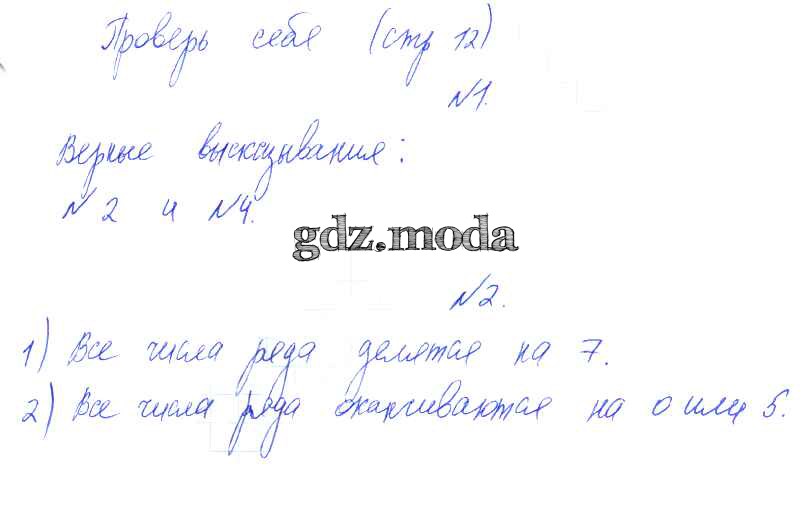 Проверь себя (стр 12)
№1.
Верные высказывания:
№2 и №4.
gdz.moda
№2.
1) Все числа ряда делятся на 7.
2) Все числа ряда оканчиваются на 0 или 5.